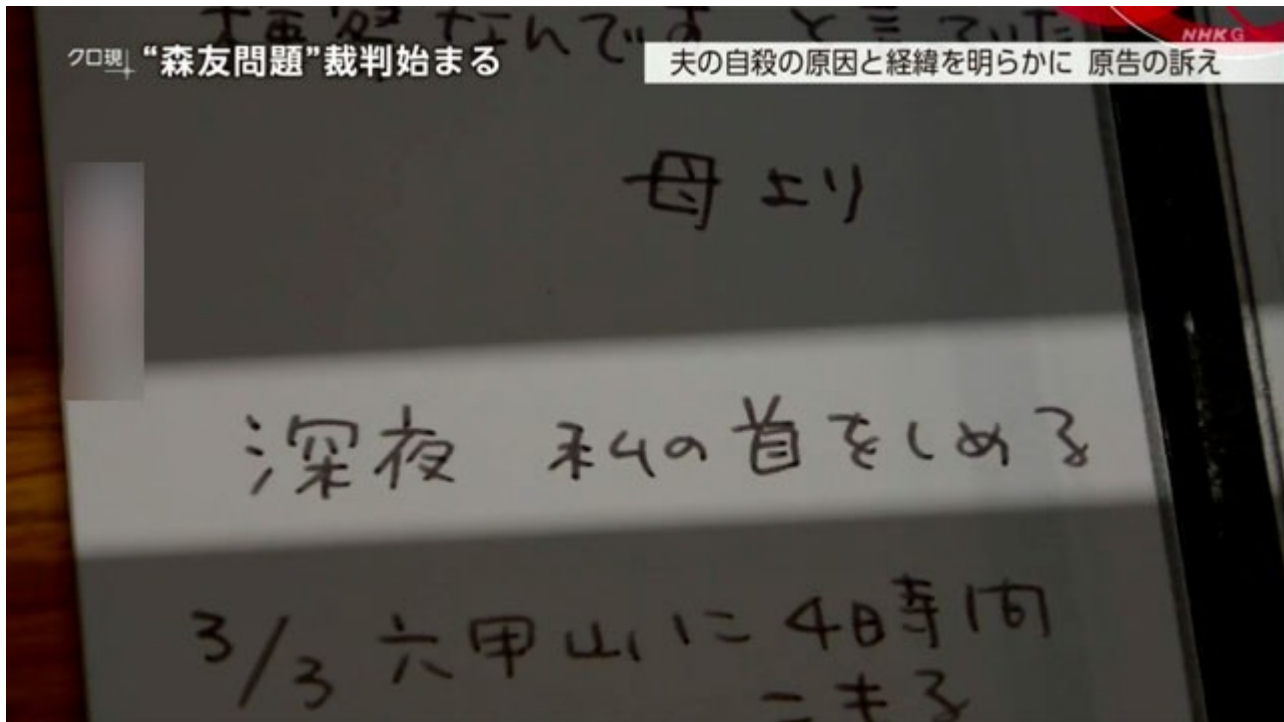 NHK G
クロ現 “森友問題”裁判始まる
夫の自殺の原因と経緯を明らかに 原告の訴え
なんです と言っていた
母より
深夜 私の首をしめる
3/3 六甲山に4時間
こもる